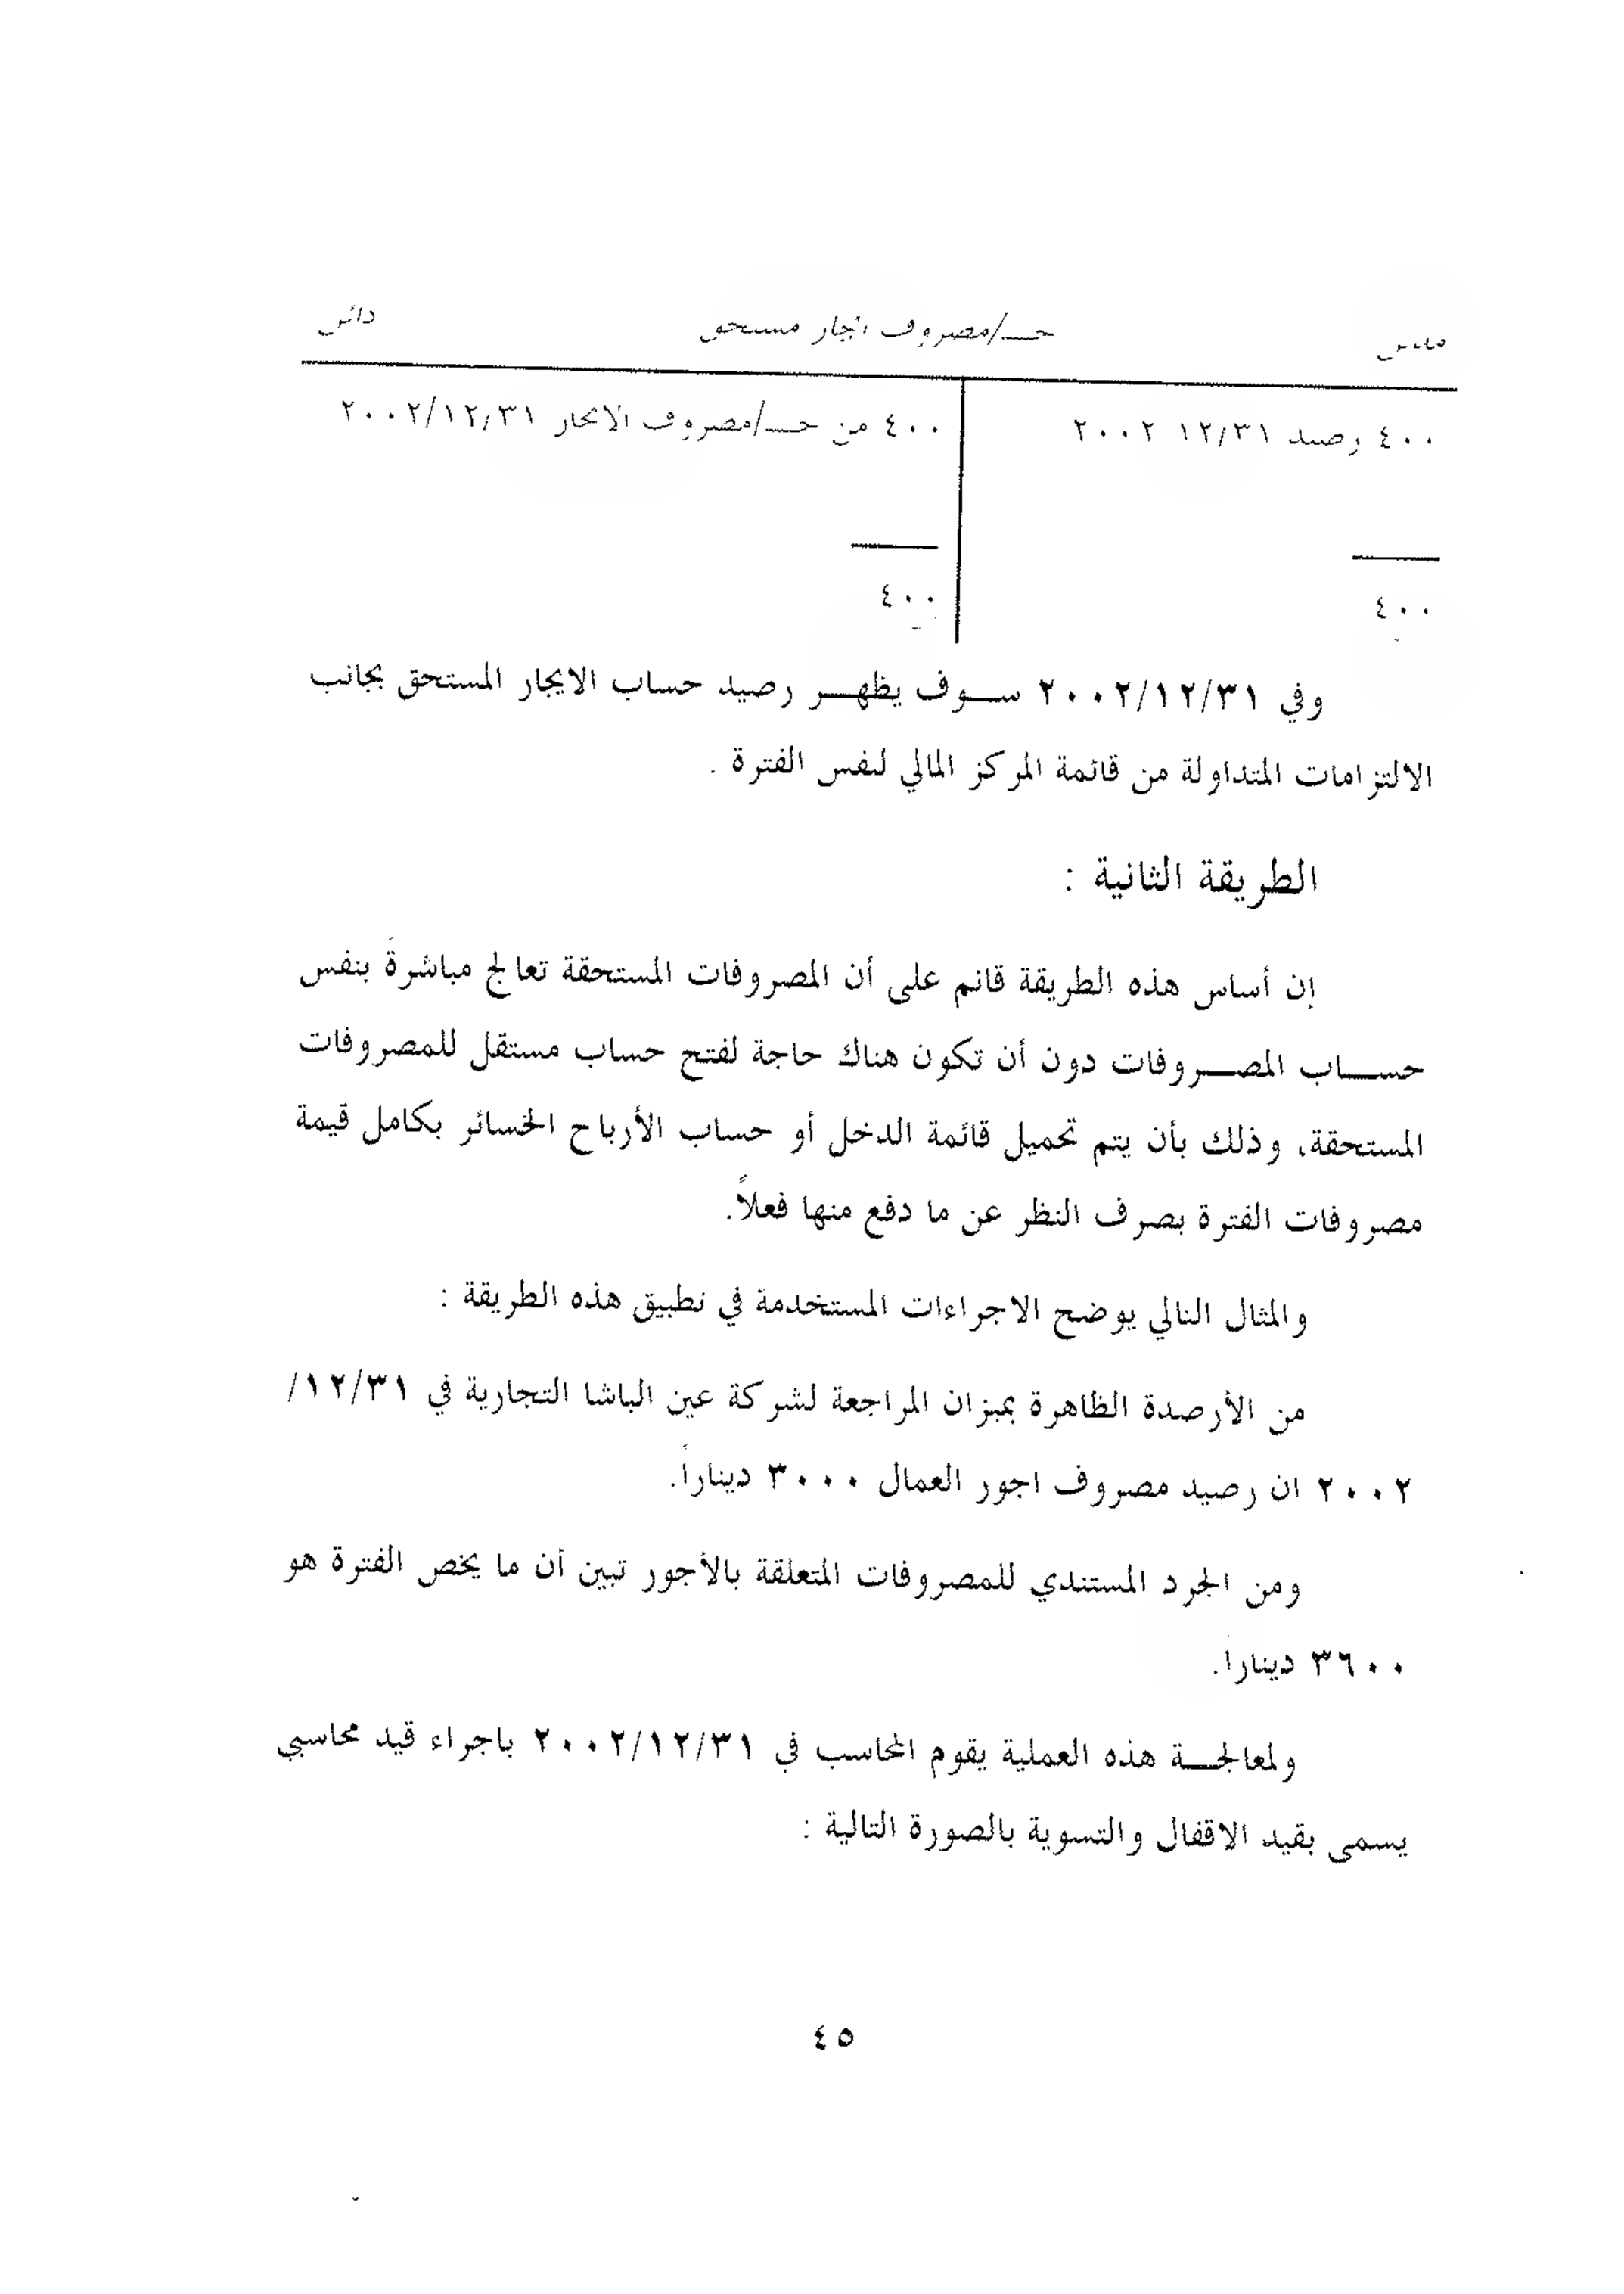 مدين حـــ/مصروف ايجار مستحق دائن
٤٠٠ رصيد ٣١/١٢ ٢٠٠٢ ٤٠٠ من حـــ/مصروف الايجار ٢٠٠٢/١٢/٣١
٤٠٠ ٤٠٠
وفي ٢٠٠٢/١٢/٣١ ســوف يظهــر رصيد حساب الايجار المستحق بجانب
الالتزامات المتداولة من قائمة المركز المالي لنفس الفترة .
الطريقة الثانية :
إن أساس هذه الطريقة قائم على أن المصروفات المستحقة تعالج مباشرةً بنفس
حســـاب المصـــروفات دون أن تكون هناك حاجة لفتح حساب مستقل للمصروفات
المستحقة، وذلك بأن يتم تحميل قائمة الدخل أو حساب الأرباح الخسائر بكامل قيمة
مصروفات الفترة بصرف النظر عن ما دفع منها فعلاً.
والمثال التالي يوضح الاجراءات المستخدمة في تطبيق هذه الطريقة :
من الأرصدة الظاهرة بميزان المراجعة لشركة عين الباشا التجارية في ١٢/٣١/
٢٠٠٢ ان رصيد مصروف اجور العمال ٣٠٠٠ ديناراً.
ومن الجرد المستندي للمصروفات المتعلقة بالأجور تبين أن ما يخص الفترة هو
٣٦٠٠ ديناراً.
ولمعالجـــة هذه العملية يقوم المحاسب في ٢٠٠٢/١٢/٣١ باجراء قيد محاسبي
يسمى بقيد الاقفال والتسوية بالصورة التالية :
٤٥